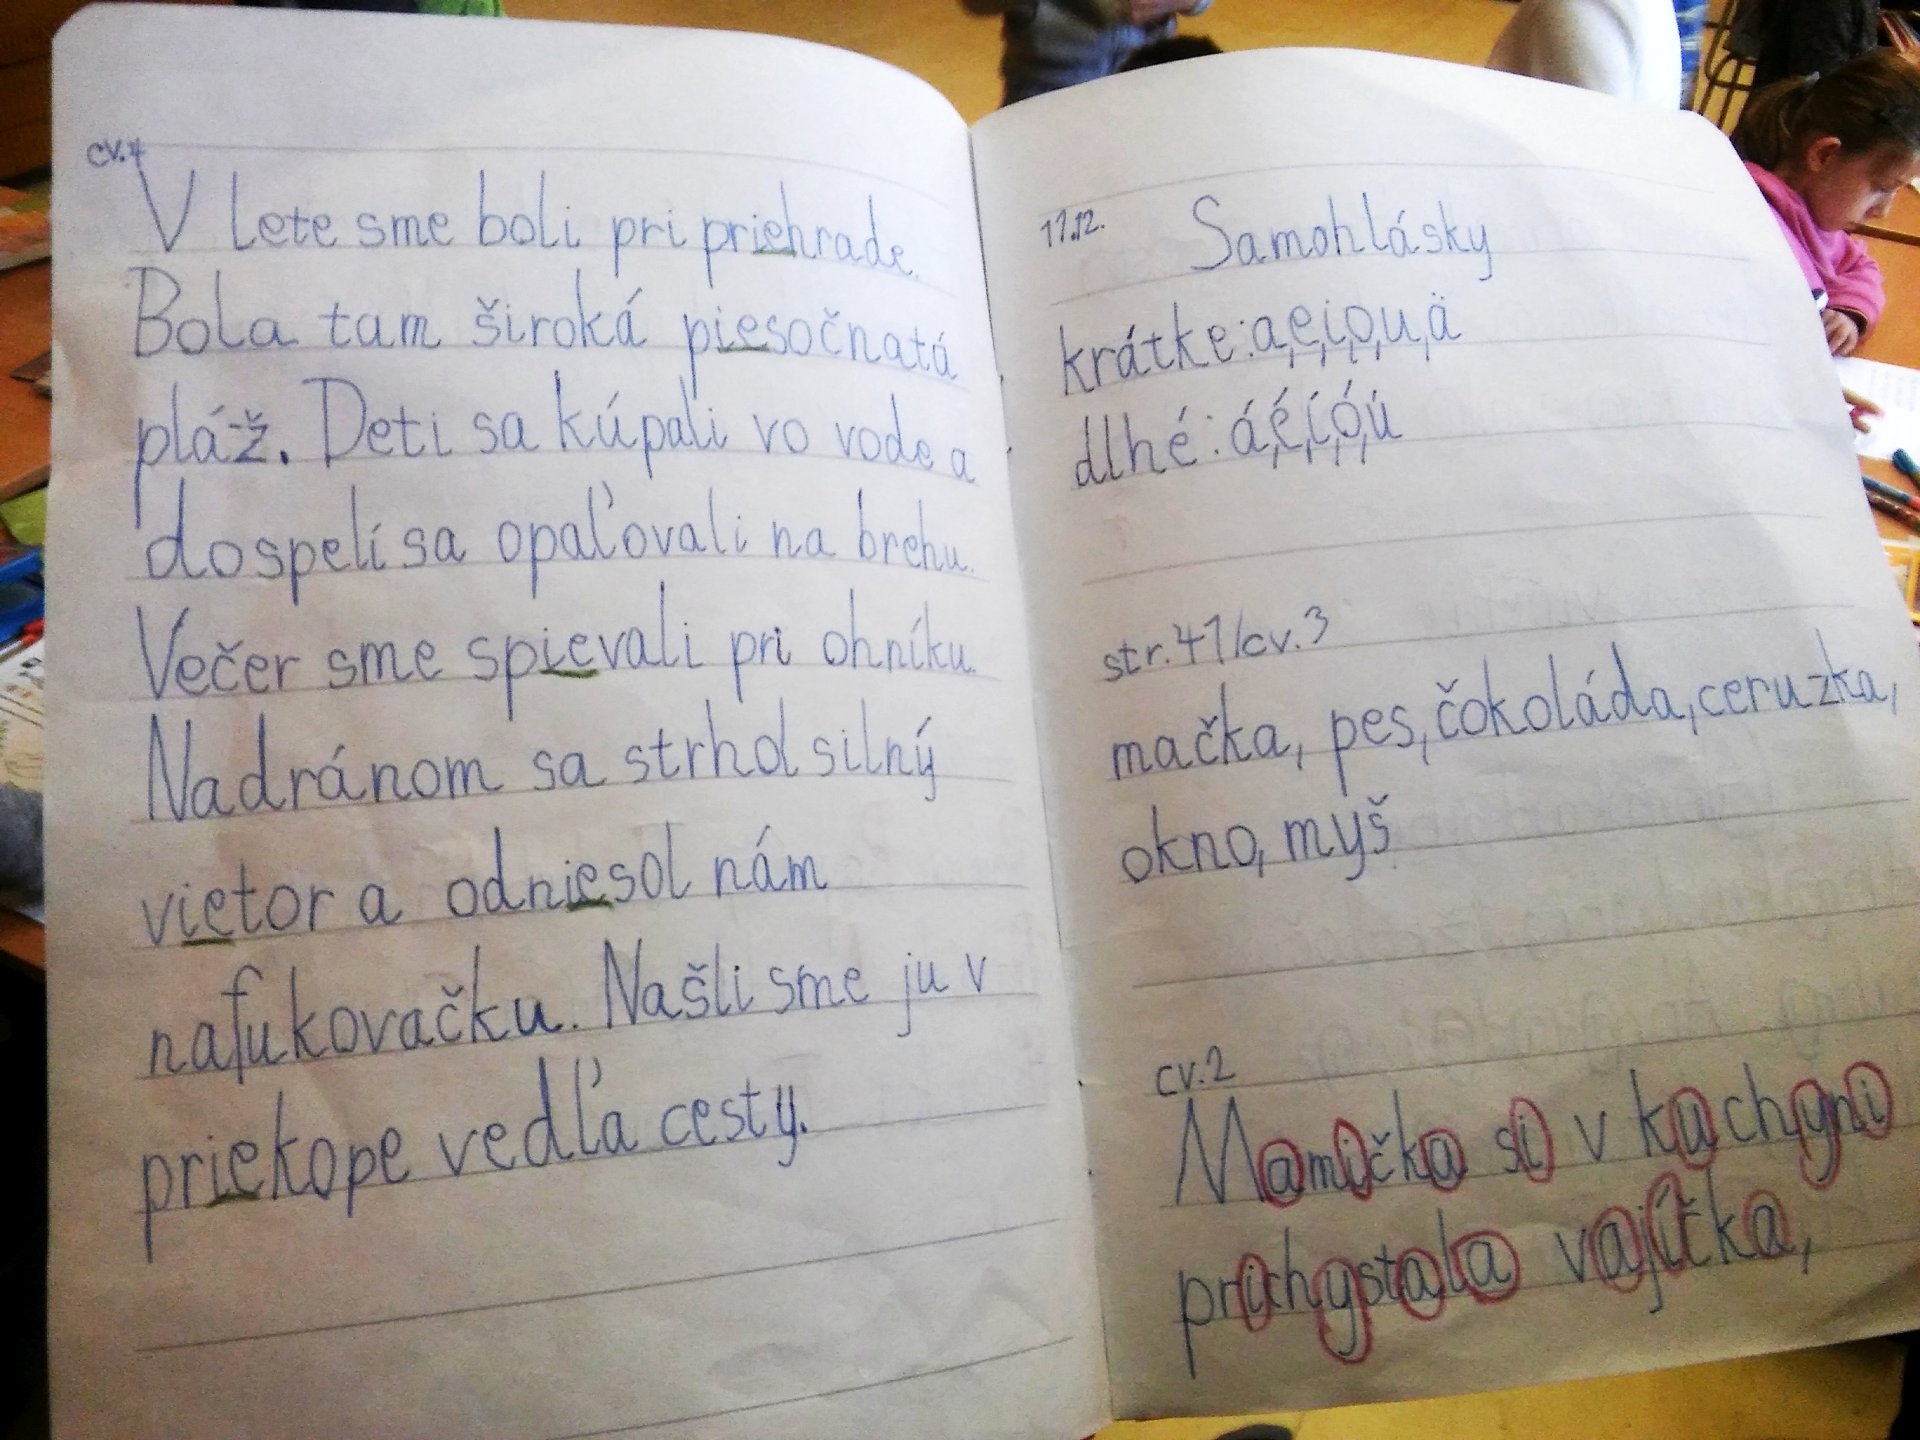 cv.4
V lete sme boli pri priehrade.
Bola tam široká piesočnatá
pláž. Deti sa kúpali vo vode a
dospelí sa opaľovali na brehu.
Večer sme spievali pri ohníku.
Nadránom sa strhol silný
vietor a odniesol nám
nafukovačku. Našli sme ju v
priekope vedľa cesty.
17.12. Samohlásky
krátke: a,e,i,o,u,ä
dlhé: á,é,í,ó,ú
str. 41/cv.3
mačka, pes, čokoláda, ceruzka,
okno, myš
cv.2
Mamička si v kuchyni
prichystala vajíčka,